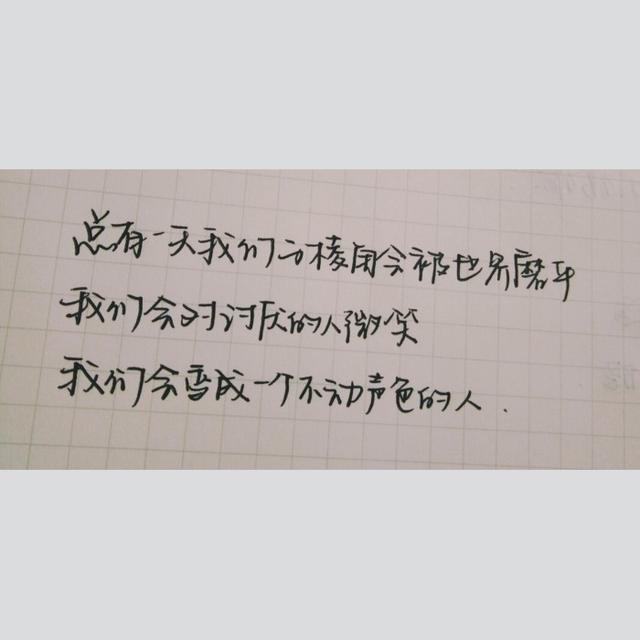 总有一天我们的棱角会被世界磨平
我们会对讨厌的人微笑
我们会变成一个不动声色的人.